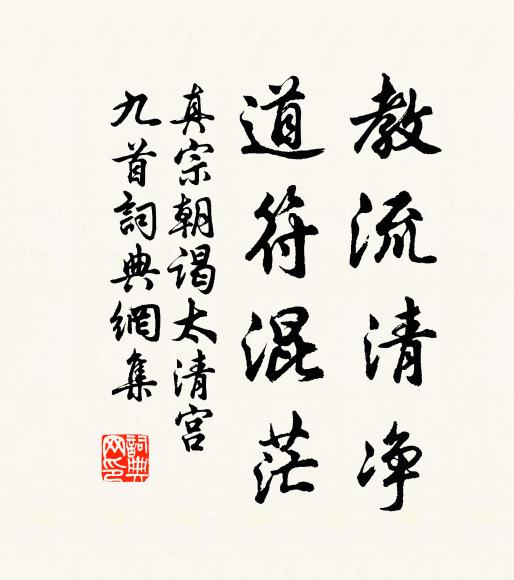 教流清净
道符混茫
真宗朝谒太清宫
九首詞典網集
詞典
网印